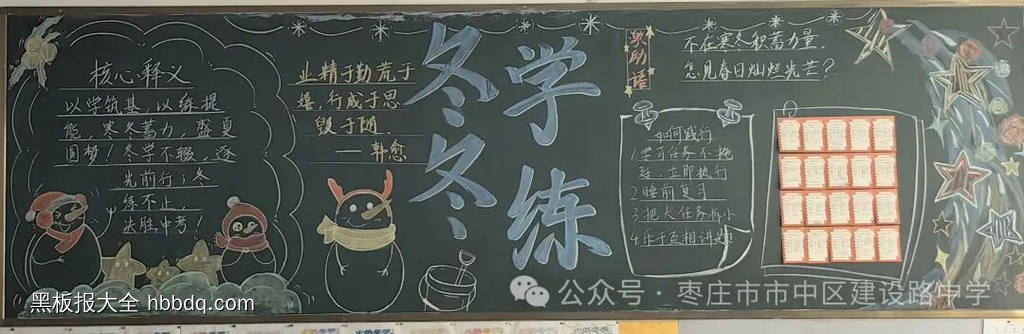 核心释义
以学筑基,以练提
能,寒冬蓄力,盛夏
圆梦!冬学不辍,逐
光前行;冬
练不止,
决胜中考!
业精于勤荒于
嬉,行成于思
毁于随.
——韩愈
冬学
冬练
励语
不在寒冬积蓄力量,
怎见春日灿烂光芒?
如何践行
1.学习任务不拖
延,立即执行
2.睡前复习
3.把大任务拆小
4.乐于互相讲题
黑板报大全 hbbdq.com
公众号·枣庄市市中区建设路中学